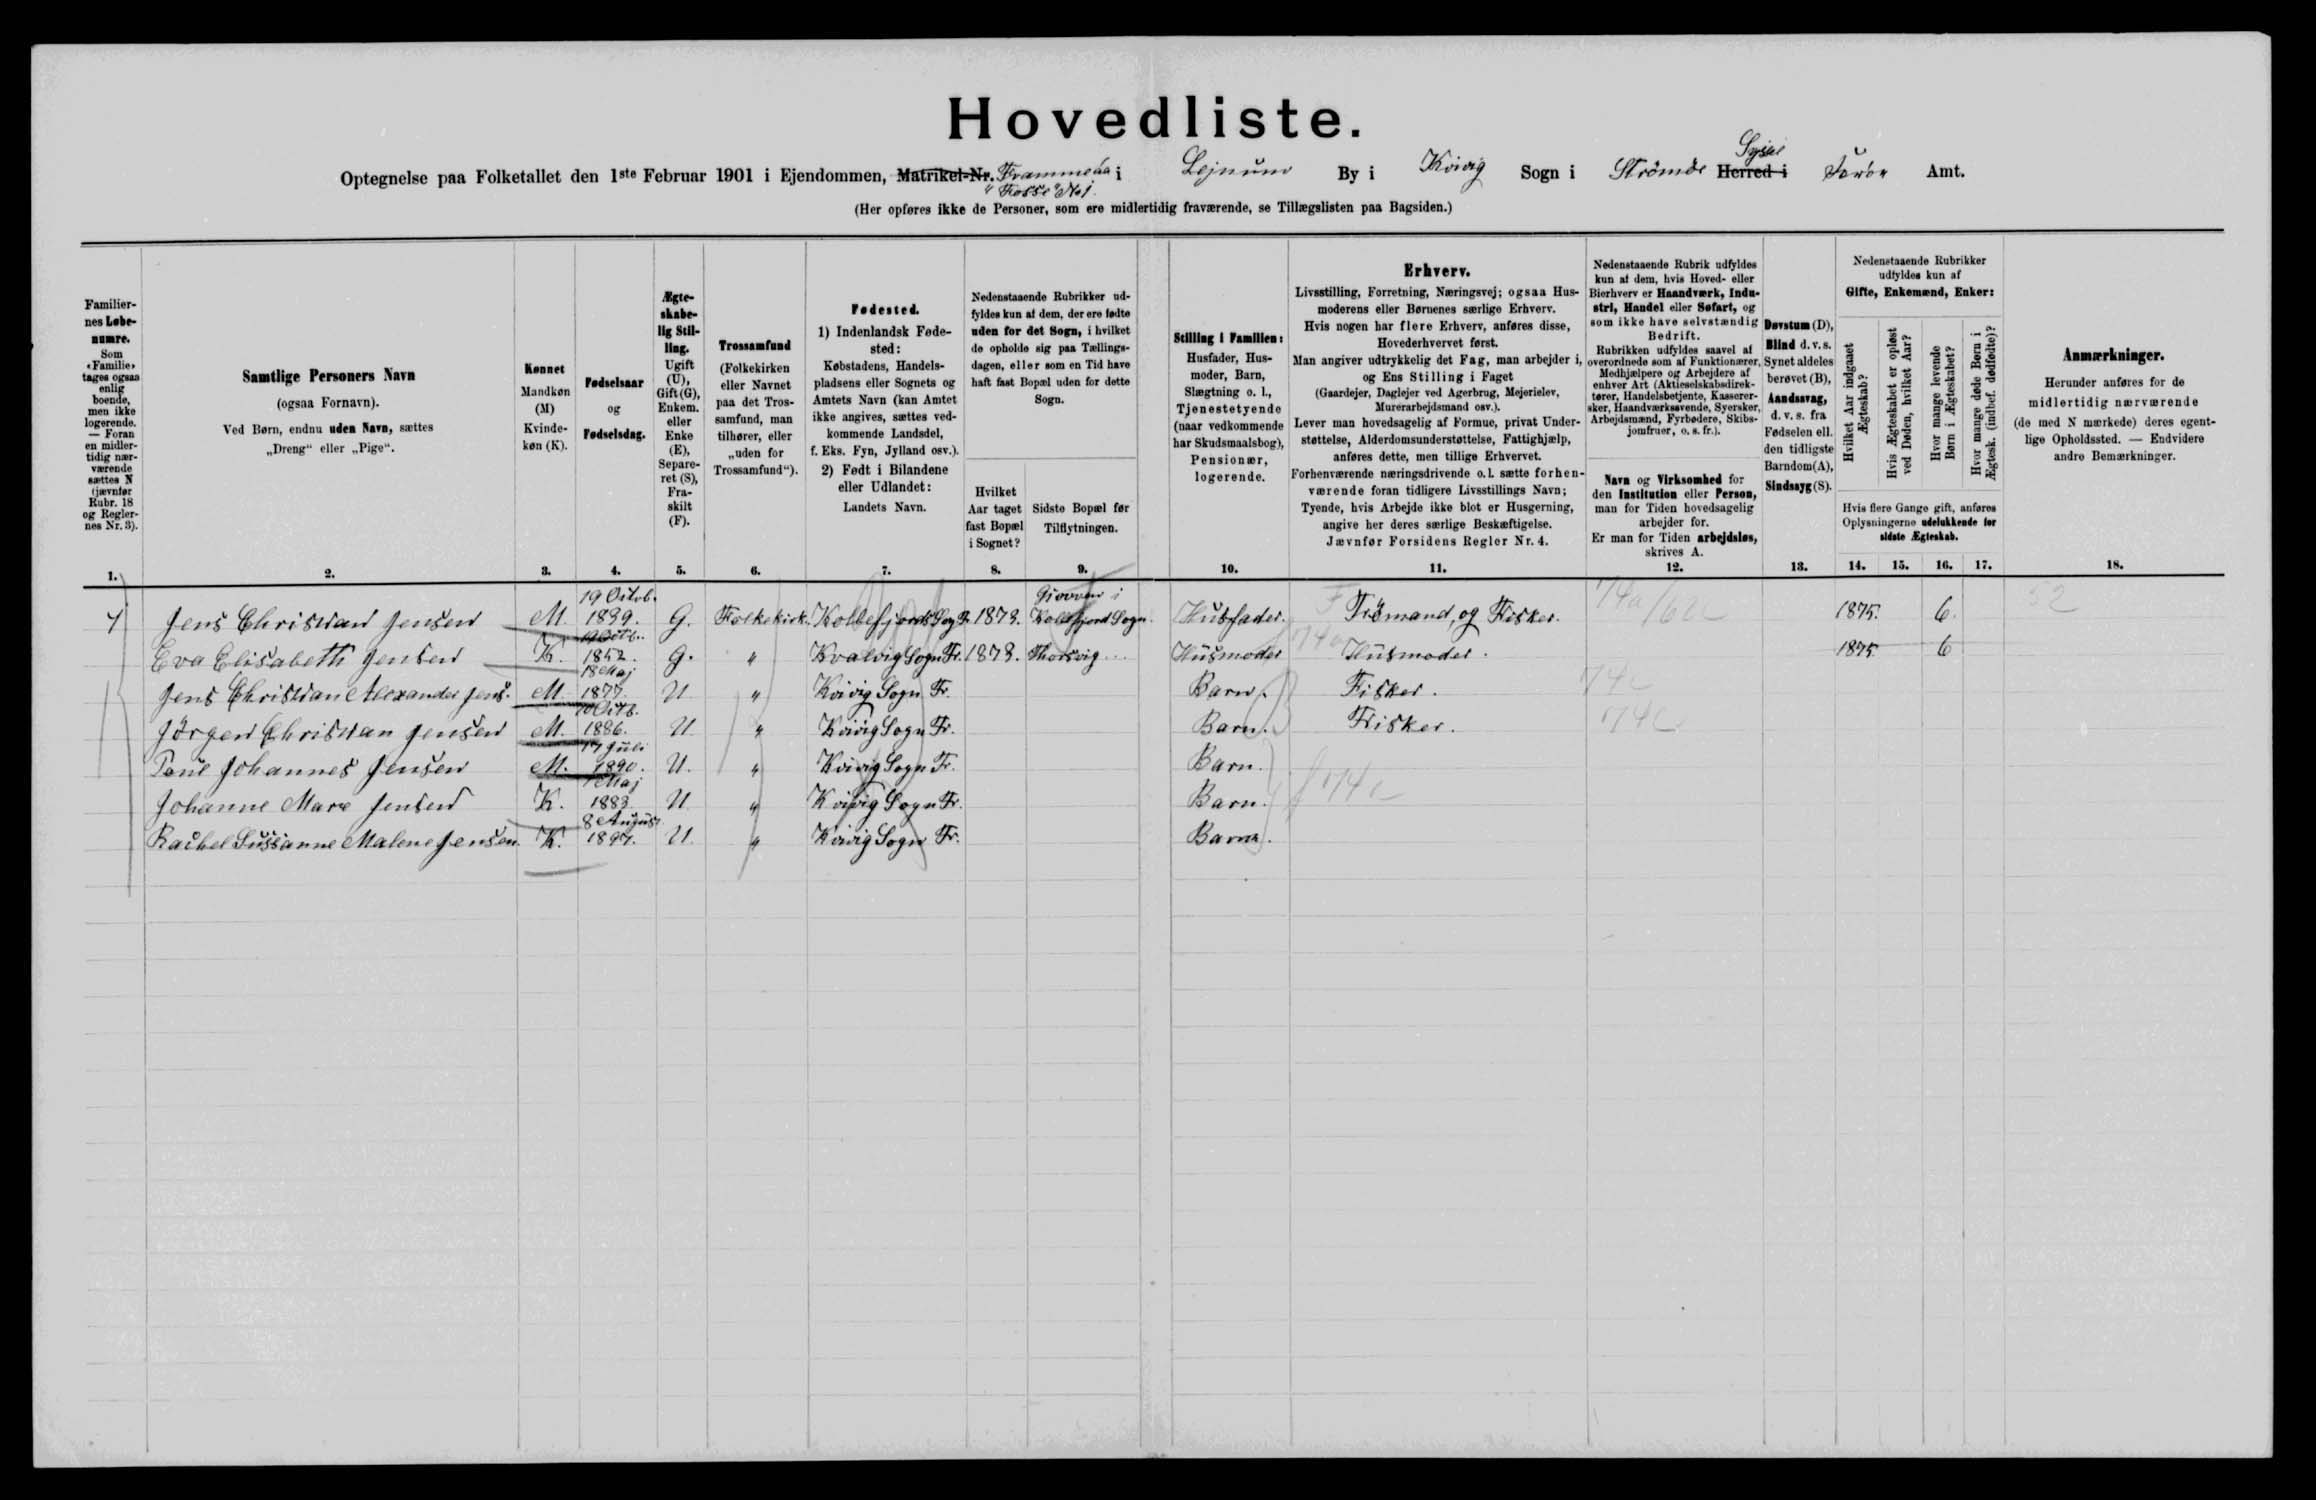 Hovedliste.
Optegnelse paa Folketallet den 1ste Februar 1901 i Ejendommen, Matrikel-Nr. Frammeáa i Lejnum By i Kvivig Sogn i Strömöe Syssel Herred i Færöe Amt.
"Fosse" No 1.
(Her opføres ikke de Personer, som ere midlertidig fraværende, se Tillægslisten paa Bagsiden.)
Familiernes Løbenumre. Som «Familie» tages ogsaa enlig boende, men ikke logerende. — Foran en midlertidig nærværende sættes N (jævnfør Rubr. 18 og Reglernes Nr. 3).
Samtlige Personers Navn (ogsaa Fornavn). Ved Børn, endnu uden Navn, sættes „Dreng“ eller „Pige“.
Kønnet Mandkøn (M) Kvindekøn (K).
Fødselsaar og Fødselsdag.
Ægteskabelig Stilling. Ugift (U), Gift (G), Enkem. eller Enke (E), Separeret (S), Fraskilt (F).
Trossamfund (Folkekirken eller Navnet paa det Trossamfund, man tilhører, eller „uden for Trossamfund“).
Fødested. 1) Indenlandsk Fødested: Købstadens, Handelspladsens eller Sognets og Amtets Navn (kan Amtet ikke angives, sættes vedkommende Landsdel, f. Eks. Fyn, Jylland osv.). 2) Født i Bilandene eller Udlandet: Landets Navn.
Nedenstaaende Rubrikker udfyldes kun af dem, der ere fødte uden for det Sogn, i hvilket de opholde sig paa Tællingsdagen, eller som en Tid have haft fast Bopæl uden for dette Sogn.
Hvilket Aar taget fast Bopæl i Sognet?
Sidste Bopæl før Tilflytningen.
Stilling i Familien: Husfader, Husmoder, Barn, Slægtning o. l., Tjenestetyende (naar vedkommende har Skudsmaalsbog), Pensionær, logerende.
Erhverv.
Livsstilling, Forretning, Næringsvej; ogsaa Husmoderens eller Børnenes særlige Erhverv.
Hvis nogen har flere Erhverv, anføres disse, Hovederhvervet først.
Man angiver udtrykkelig det Fag, man arbejder i, og Ens Stilling i Faget
(Gaardejer, Daglejer ved Agerbrug, Mejerielev, Murerarbejdsmand osv.).
Lever man hovedsagelig af Formue, privat Understøttelse, Alderdomsunderstøttelse, Fattighjælp, anføres dette, men tillige Erhvervet.
Forhenværende næringsdrivende o. l. sætte forhenværende foran tidligere Livsstillings Navn; Tyende, hvis Arbejde ikke blot er Husgerning, angive her deres særlige Beskæftigelse.
Jævnfør Forsidens Regler Nr. 4.
Nedenstaaende Rubrik udfyldes kun af dem, hvis Hoved- eller Bierhverv er Haandværk, Industri, Handel eller Søfart, og som ikke have selvstændig Bedrift.
Rubrikken udfyldes saavel af overordnede som af Funktionærer, Medhjælpere og Arbejdere af enhver Art (Aktieselskabsdirektører, Handelsbetjente, Kasserersker, Haandværkssvende, Syersker, Arbejdsmænd, Fyrbødere, Skibsjomfruer, o. s. fr.).
Navn og Virksomhed for den Institution eller Person, man for Tiden hovedsagelig arbejder for.
Er man for Tiden arbejdsløs, skrives A.
Døvstum (D), Blind d. v. s. Synet aldeles berøvet (B), Aandssvag, d. v. s. fra Fødselen ell. den tidligste Barndom (A), Sindssyg (S).
Nedenstaaende Rubrikker udfyldes kun af Gifte, Enkemænd, Enker:
Hvilket Aar indgaaet Ægteskab?
Hvis Ægteskabet er opløst ved Døden, hvilket Aar?
Hvor mange levende Børn i Ægteskabet?
Hvor mange døde Børn i Ægtesk. (indbef. dødfødte)?
Hvis flere Gange gift, anføres Oplysningerne udelukkende for sidste Ægteskab.
Anmærkninger.
Herunder anføres for de midlertidig nærværende (de med N mærkede) deres egentlige Opholdssted. — Endvidere andre Bemærkninger.
1. 2. 3. 4. 5. 6. 7. 8. 9. 10. 11. 12. 13. 14. 15. 16. 17. 18.
1 Jens Christian Jensen M. 19 Octob. 1839. G. Folkekirk. Kollefjord Sogn 1873. i Kollefjord Sogn. Husfader. F Trömand, og Fisker. 74a 1875. 6. 52
Eva Elisabeth Jensen K. 19 Octb. 1852. G. " Kvalvig Sogn Fr. 1873. Thorsvig Husmoder Husmoder. 1875 6
Jens Christian Alexander Jens. M. 18 Maj 1877. U " Kvivig Sogn Fr. Barn. Fisker. 74c
Jörgen Christian Jensen M. 10 Octb. 1886. U. " Kvivig Sogn Fr. Barn. Fisker. 74c
Poul Johannes Jensen M. 17 Juli 1890. U. " Kvivig Sogn Fr. Barn.
Johanne Marie Jensen K. 1 Maj 1883. U " Kvivig Sogn Fr. Barn. 74c
Rachel Sussanne Malene Jensen. K. 8 August 1897. U " Kvivig Sogn Fr. Barn.